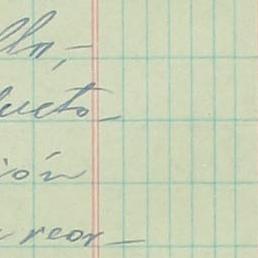 lla,-
ducto-
ión
reor-